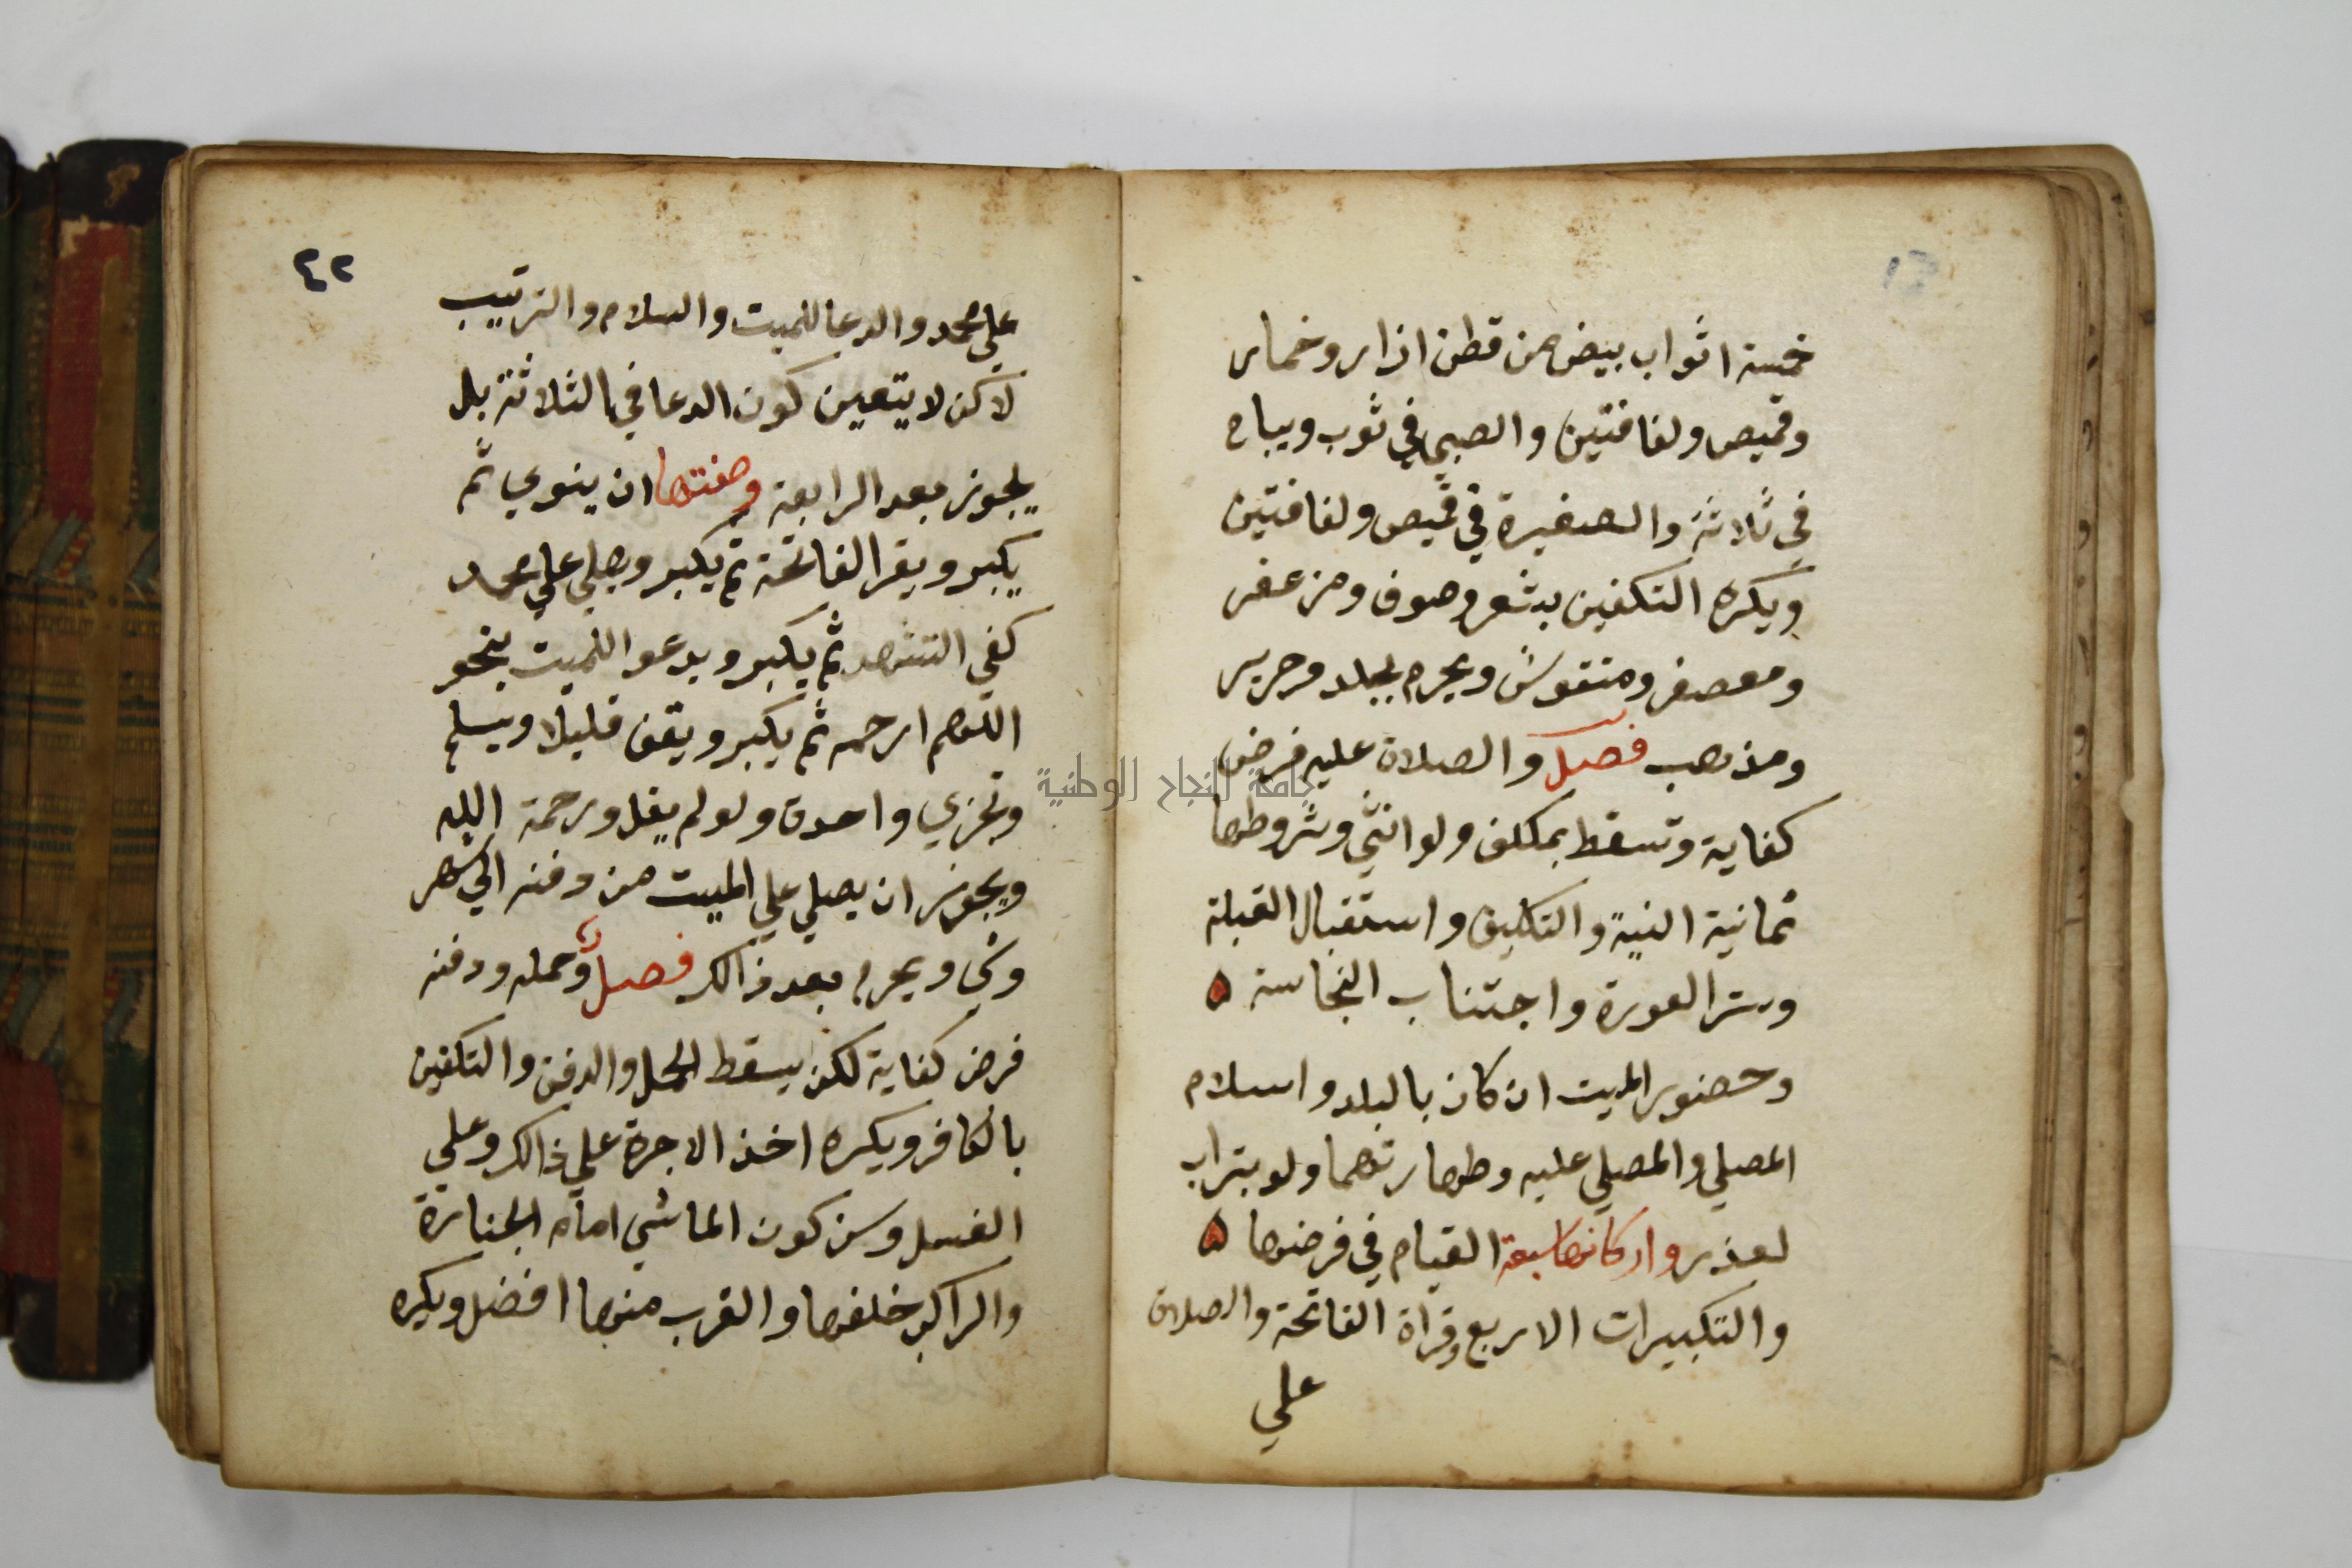 خمسة اثواب بيض من قطن ازار وخمار
وقميص ولفافتين والصبي في ثوب ويباح
في ثلاثة والصغيرة في قميص ولفافتين
ويكره التكفين بشعر وصوف ومزعفر
ومعصفر ومنقوش ويحرم بجلد وحرير
ومذهب فصل والصلاة عليه فرض
كفاية وتسقط بمكلف ولو انثي وشروطها
ثمانية النية والتكليف واستقبال القبلة
وستر العورة واجتناب النجاسة
وحضور الميت ان كان بالبلد واسلام
المصلي والمصلي عليه وطهارتهما ولو بتراب
لعذر واركانها سبعة القيام في فرضها
والتكبيرات الاربع وقراة الفاتحة والصلاة
علي
٤٢
علي محمد والدعا للميت والسلام والترتيب
لاكن لا يتعين كون الدعا في الثلاثة بل
يجوز بعد الرابعة وصفتها ان ينوي ثم
يكبر ويقرا الفاتحة ثم يكبر ويصلي علي محمد
كفي التشهد ثم يكبر ويدعو للميت بنحو
اللهم ارحمه ثم يكبر ويقف قليلا ويسلم
وتجزي واحدة ولو لم يقل ورحمة الله
ويجوز ان يصلي علي الميت من دفنه الي شهر
وشي ويحرم بعد ذالك فصل وحمله ودفنه
فرض كفاية لكن يسقط الحمل والدفن والتكفين
بالكافر ويكره اخذ الاجرة علي ذالك وعلي
الغسل وسن كون الماشي امام الجنازة
والراكب خلفها والقرب منها افضل ويكره
جامعة النجاح الوطنية